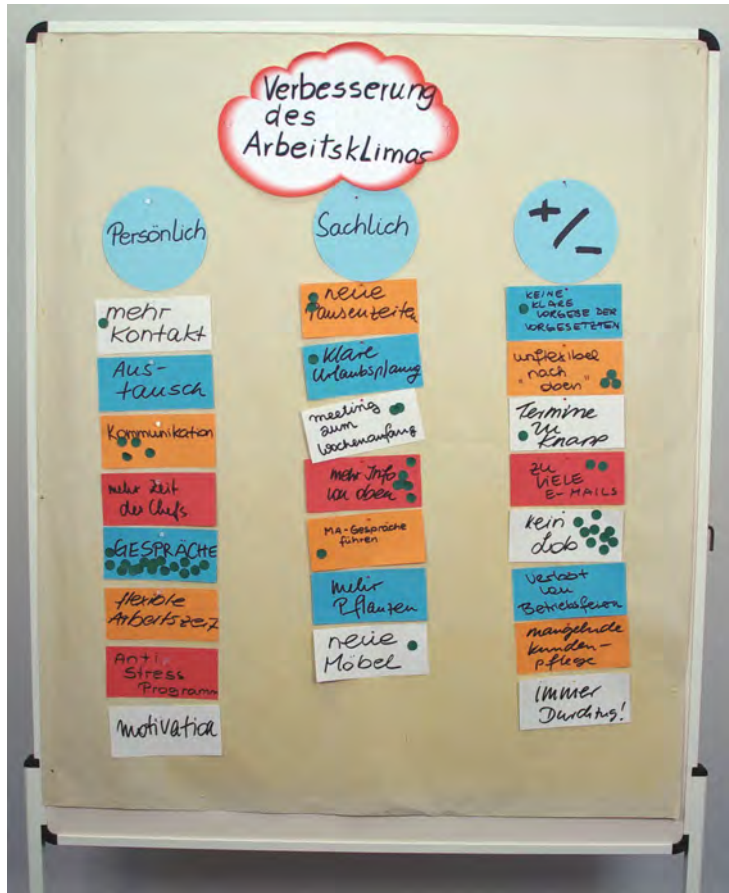 Verbesserung
des
Arbeitsklimas
Persönlich
mehr
Kontakt
Aus-
tausch
Kommunikation
mehr Zeit
des Chefs
GESPRÄCHE
flexible
Arbeitszeit
Anti
Stress
Programm
motivation
Sachlich
neue
Pausenzeiten
klare
Urlaubsplanung
meeting
zum
Wochenanfang
mehr Info
von oben
MA-Gespräche
führen
mehr
Pflanzen
neue
Möbel
+/-
KEINE
KLARE
VORGEBE DER
VORGESETZTEN
unflexibel
"nach
oben"
Termine
zu
Knapp
ZU
VIELE
E-MAILS
kein
Lob
von
Betriebsferien
mangelnde
Kunden-
pflege
immer
Durchzug!